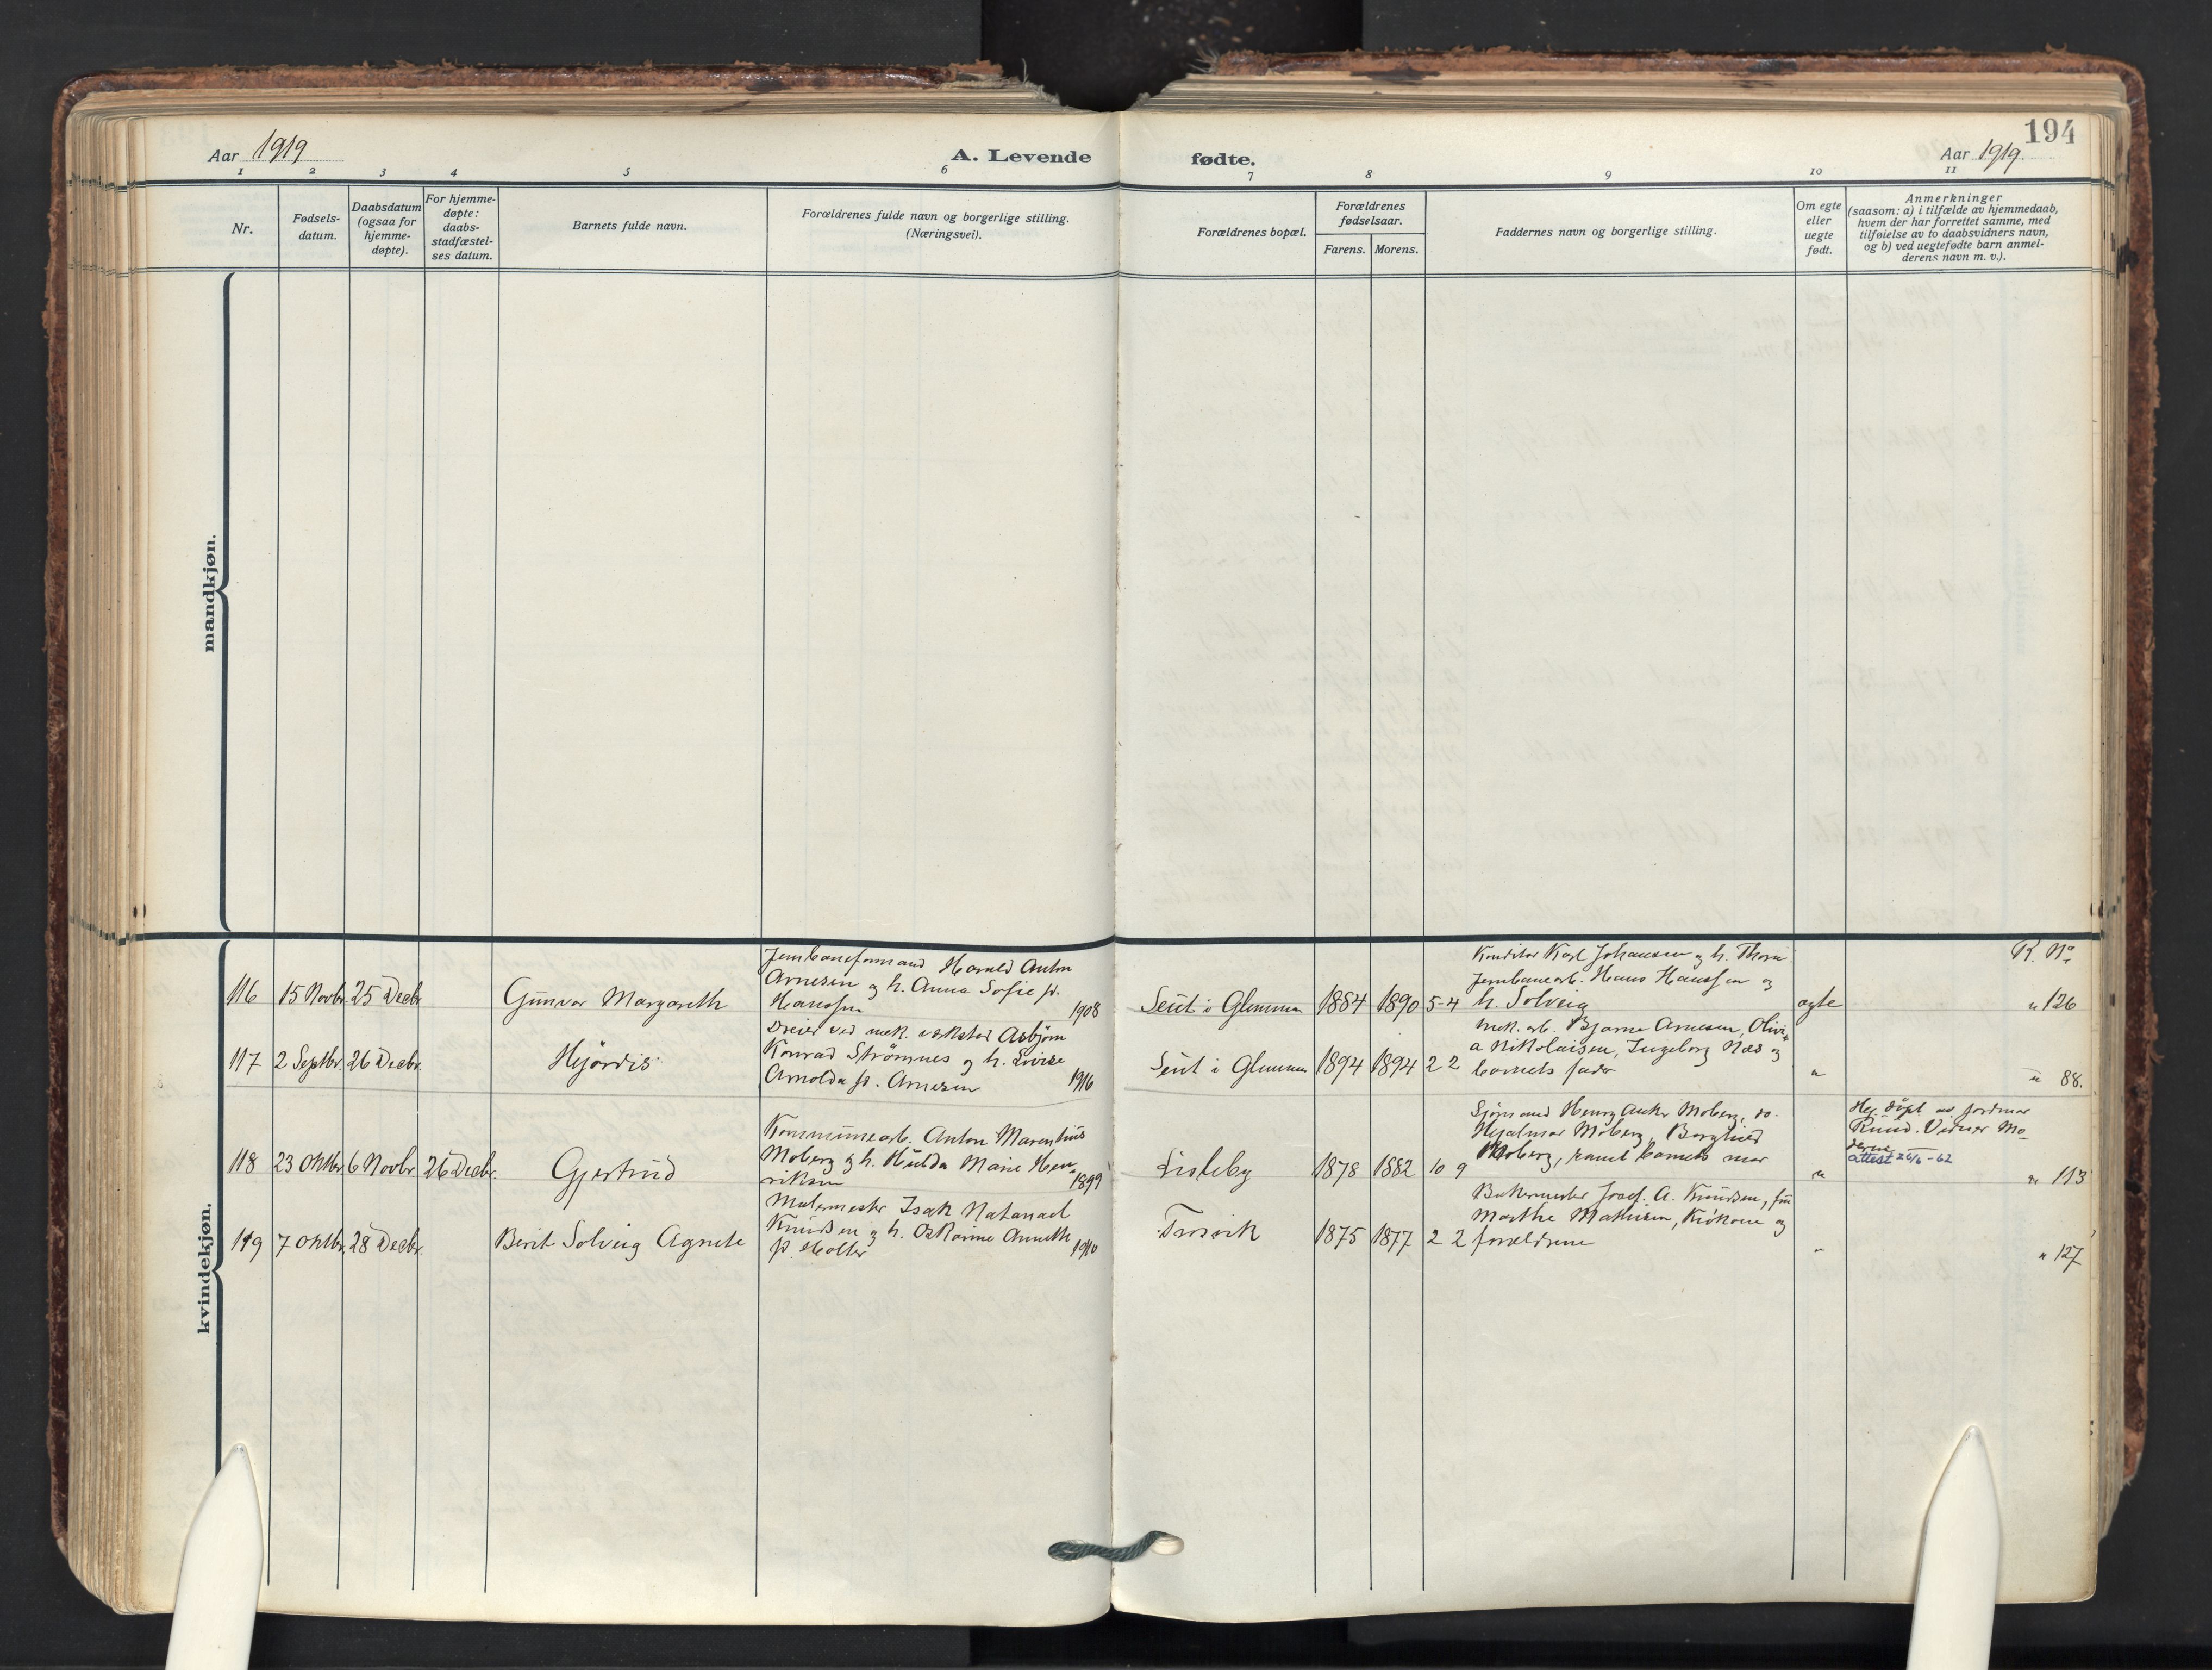 194
Aar 1919
A. Levende
fødte.
Aar 1919.
1 2 3 4 5 6 7 8 9 10 11
Nr.
Fødsels-
datum.
Daabsdatum
(ogsaa for
hjemme-
døpte).
For hjemme-
døpte:
daabs-
stadfæstel-
ses datum.
Barnets fulde navn.
Forældrenes fulde navn og borgerlige stilling.
(Næringsvei).
Forældrenes bopæl.
Forældrenes
fødselsaar.
Farens. Morens.
Faddernes navn og borgerlige stilling.
Om egte
eller
uegte
født.
Anmerkninger
(saasom: a) i tilfælde av hjemmedaab,
hvem der har forrettet samme, med
tilføielse av to daabsvidners navn,
og b) ved uegtefødte barn anmel-
derens navn m. v.).
mandkjøn.
kvindekjøn.
R. No.
116 15 Novbr. 25 Decbr. Gunvor Margareth
Jernbaneformand Harald Anton
Arnesen og h. Anna Sofie f.
Hanssen 1908
Seut i Glemmen 1884 1890 5-4
Konditor Karl Johansen og h. Thora
Jernbanearb. Hans Hanssen og
h. Solveig
egte
" 126
117 2 Septbr. 26 Decbr. Hjördis
Dreier ved mek. verksted Asbjörn
Konrad Strømnes og h. Lovise
Arnolda f. Arnesen 1916
Seut i Glemmen 1894 1894 2 2
mek. arb. Bjarne Arnesen, Olivi-
a Nikolaisen, Ingeborg Næs og
barnets fader
"
" 88.
118 23 Oktbr. 6 Novbr. 26 Decbr. Gjertrud
Kommunearb. Anton Marentius
Moberg og h. Hulda Marie Hen-
riksen 1899
Lisleby 1878 1882 10 9
Sjömand Henry Anker Moberg, do.
Hjalmar Moberg, Borghild
Moberg, samt barnets mor
"
Hj. döpt av jordmor
Ruud. Vidner Mo-
deren
attest 26/6-62
" 113
119 7 Oktbr. 28 Decbr. Berit Solveig Agnete
Malermester Isak Natanael
Knudsen og h. Oskarine Anneth
f. Holter 1910
Trosvik 1875 1877 2 2
Bakermester Josef. A. Knudsen, fru
Marthe Mathisen, Kråkene og
forældrene
"
" 127